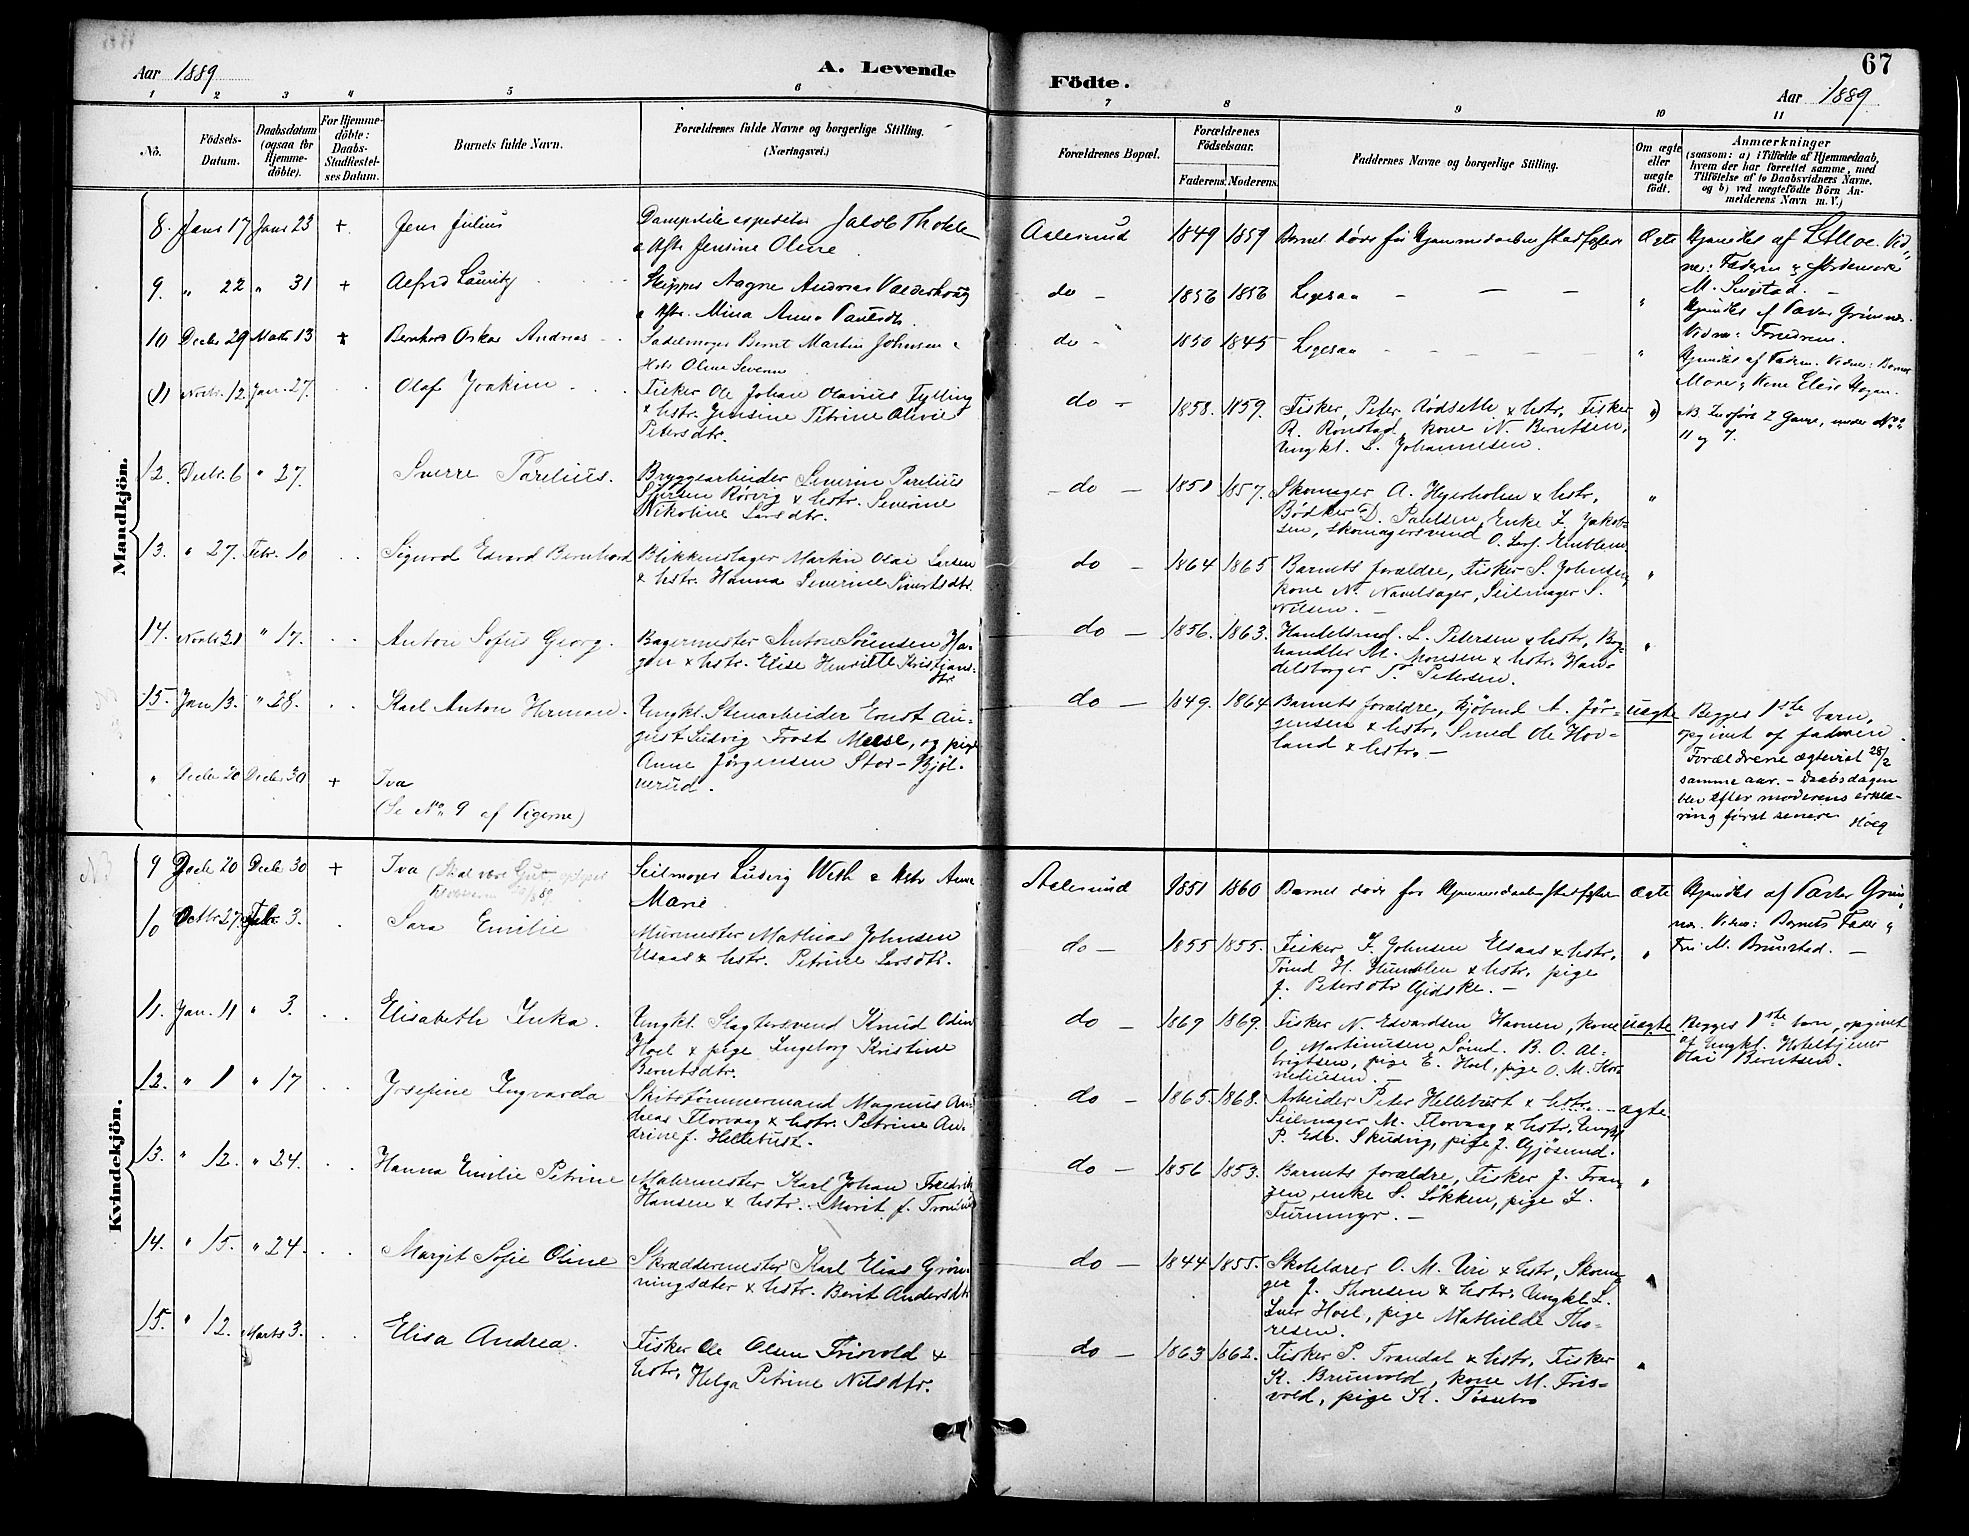 Aar 1889
A. Levende
Födte.
67
Aar 1889
1 2 3 4 5 6 7 8 9 10 11
No.
Födsels-
Datum.
Daabsdatum
(ogsaa for
Hjemme-
döbte).
For Hjemme-
döbte:
Daabs-
Stadfæstel-
ses Datum.
Barnets fulde Navn.
Forældrenes fulde Navne og borgerlige Stilling.
(Næringsvei.)
Forældrenes Bopæl.
Forældrenes
Födselsaar.
Faderens. Moderens.
Faddernes Navne og borgerlige Stilling.
Om ægte
eller
uægte
födt.
Anmærkninger
(saasom: a) i Tilfælde af Hjemmedaab,
hvem der har forrettet samme, med
Tilföielse af to Daabsvidners Navne,
og b) ved uægtefödte Börn An-
melderens Navn m. V.)
Mandkjön.
8. Janr 17 Janr 23 + Jens Julius
Jakob
Jensine Oline
Aalesund 1849 1859
Ægte
9. " 22 " 31 + Alfred Lauritz
Skipper Aagne Andreas Valderhoug
Mina Anna
do - 1856 1856 Ligesaa - - - "
10 Decbr 29 Mars 13 + Bernhard Oskar Andreas
Sadelmager Bernt Martin Johnsen
Hstr Oline
do - 1850 1845 Ligesaa - - - "
11 Novbr. 12 Jan. 27. Olaf Joakim
Fisker Ole Johan Olavius Fylling
& hstr. Jensine Petrine Olivie
Petersdtr.
do - 1858. 1859. Fisker, Peter Rödseth & hstr, Fisker
R. Ronstad, kone N. Berntsen,
Ungkl. L. Johannesen.
11 og 7.
12. Decbr. 6 " 27. Sverre Parelius.
Bryggearbeider Severin Parelius
Rörvig & hstr. Severine
Nikoline Larsdtr.
- do - 1851 1857. Skomager A. & hstr,
Bödker D. Paulsen, Enke
sen, skomagersvend O. Emblem
"
13. " 27. Febr. 10 Sigurd Edvard Bernhard
Blikkenslager Martin Olai Larsen
& hstr. Hanna Severine Sivertsdtr.
do - 1864 1865 Barnets forældre, Fisker S. Johnsen,
kone N. Navelsager, Seilmager S.
Nilsen. -
"
14. Novbr 21 " 17. Anton Sofus Georg.
Bagermester Anton Sörensen Ha-
gen & hstr. Elise Henriette Kristians-
dtr.
do - 1856. 1863. Handelsmd. L. Petersen & hstr, Bog-
handler M. Monsen & hstr. Han-
delsborger P. Petersen.
"
15. Jan 13. " 28. Karl Anton Herman.
Ungkl. Stenarbeider Ernst Au-
gust Ludvig Frost Meese, og pige
Anne Jörgensen Stor-Bjöl-
verud.
do - 1849. 1864 Barnets forældre, Kjöbmd A. Jör-
gensen & hstr, Smed Ole Hov-
land & hstr. -
uægte
Begges 1ste barn,
opgivet af faderen.
Forældrene ægteviet 28/2
samme aar. - Daabsdagen
blev efter moderens erklæ-
ring först senere
" Decbr 20 Decbr 30 + Iva
(Se No. 9 af Pigerne)
Kvindekjön.
9 Decbr 20 Decbr 30 + Iva (Skal være Gut
Seilmager Ludvig Weth & Hstr Anne
Marie
Aalesund 1851 1860 Barnet döde för Hjemmedaabens
ægte
10 Octbr. 27. Febr. 3. Sara Emilie
Murmester Mathias Johnsen
Elsaas & hstr. Petrine Larsdtr.
do - 1855 1855. Fisker F. Johnsen Elsaas & hstr,
Tömd. H. Humblen & hstr, pige
J. Petersdtr Gjidske. -
"
11. Jan. 11 " 3. Elisabeth Inka.
Ungkl. Slagtersvend Knud Odin
Hoel & pige Ingeborg Kristine
Berntsdtr.
do - 1869 1869. Fisker N. Edvardsen Havnen, kone
O. Martinusen Sömd. B. O. Al-
brigtsen, pige E. Hoel, pige O. M. Kor-
neliusen. -
uægte
Begges 1ste barn, opgivet
af Ungkl. Hoteltjener
Olai Berntsen.
12. " 1 " 17 Josefine Ingvarda
Skibstömmermand Magnus An-
dreas Florvaag & hstr. Petrine An-
drine f. Hellebust.
do - 1865 1868. Arbeider Peter Hellebust & hstr. -
Seilmager M. Florvaag & hstr, Ungkl
P. Edv. Skudvig, pige J. Gjösund.
ægte
13. " 12. " 24. Hanna Emilie Petrine
Malermester Karl Johan Fredrik
Hansen & hstr. Marit f.
do - 1856 1853. Barnets forældre, Fisker J. Fran-
zen, enke S. Lökken, pige
Furumyr. -
"
14. " 15. " 24. Margit Sofie Oline
Skræddermester Karl Elias Grön-
ningsæter & hstr. Berit Andersdtr
do - 1844 1855. Skolelærer O. M. Uri & hstr, Skoma-
ger J. Thoresen & hstr, Ungkl L.
Iver Hoel, pige Mathilde Tho-
resen.
"
15. " 12. Marts 3. Elisa Andrea.
Fisker Ole Olsen Frisvold &
hstr, Helga Petrine Nilsdtr.
do - 1863 1862. Fisker P. Trandal & hstr, Fisker
K. Brunvold, kone M. Fris-
vold, pige K. Tössebro
"